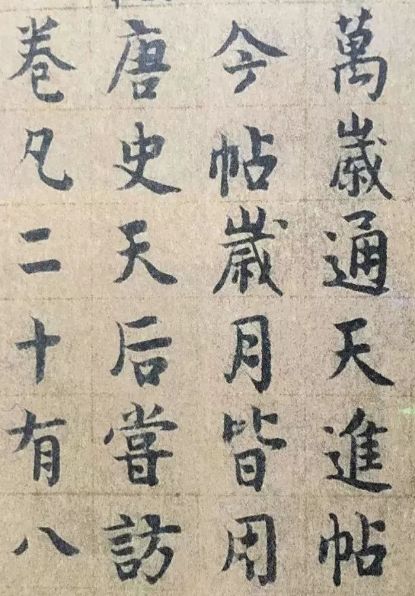 萬歲通天進帖
今帖歲月皆用
唐史天后嘗訪
卷凡二十有八